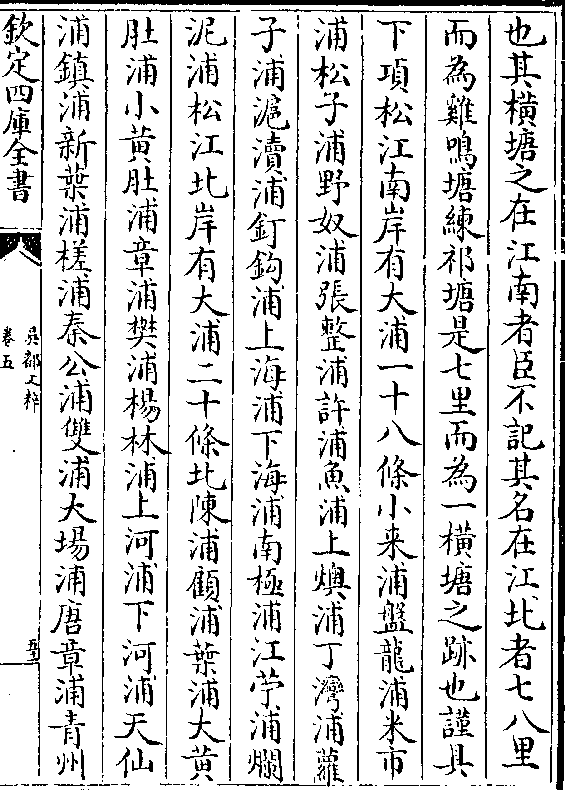 也其横塘之在江南者臣不記其名在江北者七八里
而為雞鳴塘練祁塘是七里而為一横塘之跡也謹具
下項松江南岸有大浦一十八條小来浦盤龍浦米市
浦松子浦野奴浦張整浦許浦魚浦上燠浦丁灣浦蘿
子浦滬瀆浦釘鈎浦上海浦下海浦南極浦江苧浦爛
泥浦松江北岸有大浦二十條北陳浦顧浦葉浦大黄
肚浦小黄肚浦章浦樊浦楊林浦上河浦下河浦天仙
浦鎮浦新葉浦槎浦秦公浦雙浦大場浦唐章浦青州
欽定四庫全書
吳都文粹
卷五